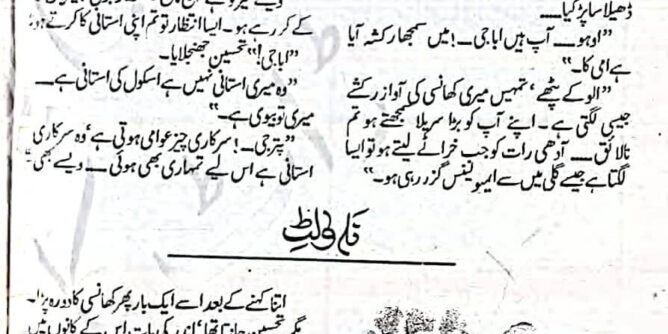 ڈھیلا سا پڑ گیا۔۔۔۔
”اوہو۔۔۔ آپ ہیں اباجی۔! میں سمجھا رکشہ آیا
ہے امی کا۔“
”الو کے پٹھے‘ تمہیں میری کھانسی کی آواز رکشے
جیسی لگتی ہے۔ اپنے آپ کو بڑا سریلا سمجھتے ہو تم
نالائق۔۔۔ آدھی رات کو جب خراٹے لیتے ہو تو ایسا
لگتا ہے جیسے گلی میں سے ایمبولینس گزر رہی ہو۔“
کے کر رہے ہو۔ ایسا انتظار تو تم اپنی استانی کا کرتے ہو؟
”اباجی!“ تحسین جھنجلایا۔
”وہ میری استانی نہیں ہے اسکول کی استانی ہے۔۔
میری تو بیوی ہے۔“
”پتر جی۔! سرکاری چیز عوامی ہوتی ہے‘ وہ سرکاری
استانی ہے اس لیے تمہاری بھی ہوئی۔۔۔ ویسے بھی یہ
ناولٹ
اتنا کہنے کے بعد اسے ایک بار پھر کھانسی کا دورہ پڑا۔